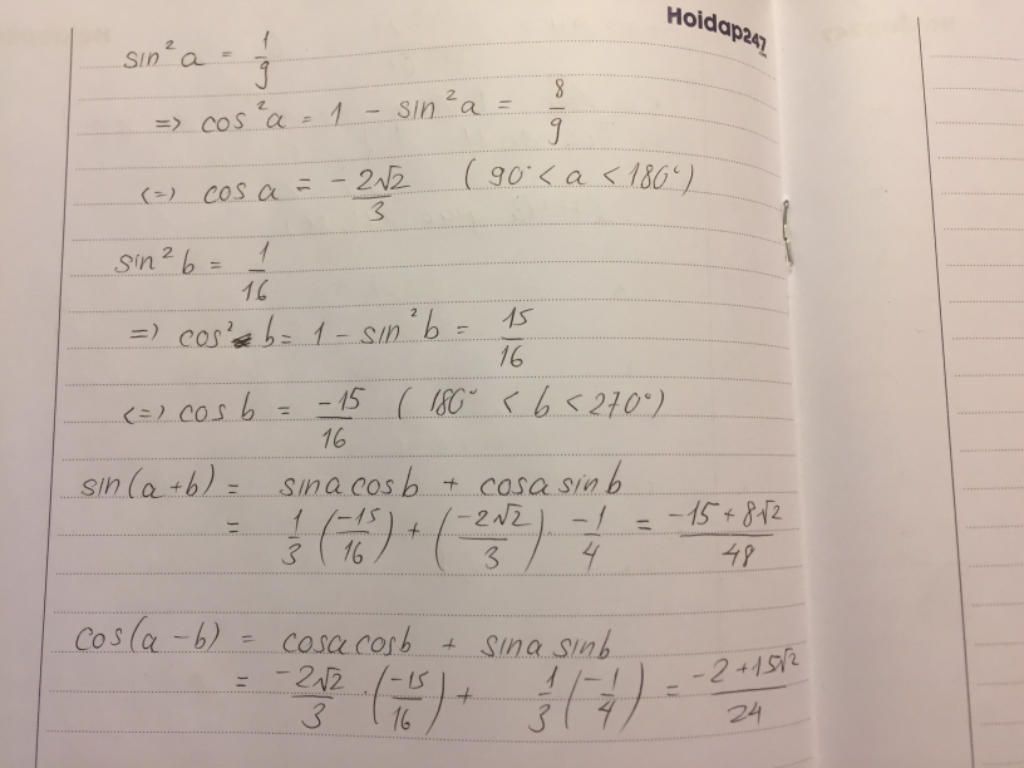 Hoidap247
sin²a = 1/9
=> cos²a = 1 - sin²a = 8/9
<=> cos a = -2√2/3 (90° < a < 180°)
sin²b = 1/16
=> cos² b = 1 - sin²b = 15/16
<=> cos b = -15/16 (180° < b < 270°)
sin(a+b) = sina cosb + cosa sinb
= 1/3 (-15/16) + (-2√2/3) . -1/4 = -15 + 8√2/48
cos(a-b) = cosa cosb + sina sinb
= -2√2/3 . (-15/16) + 1/3 (-1/4) = -2 + 15√2/24